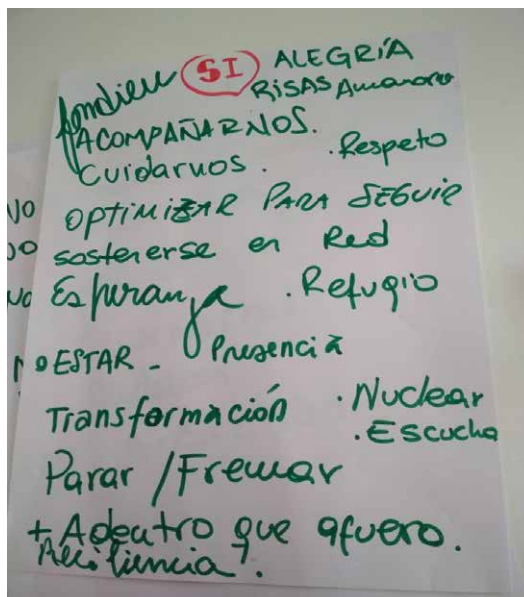 SI ALEGRÍA
RISAS
ACOMPAÑARNOS.
Cuidarnos. . Respeto
OPTIMIZAR PARA SEGUIR
sostenerse en Red
Esperanza . Refugio
• ESTAR - Presencia
Transformación . Nuclear
. Escucha
Parar / Frenar
+ Adentro que afuera.
Resiliencia
NO
NO